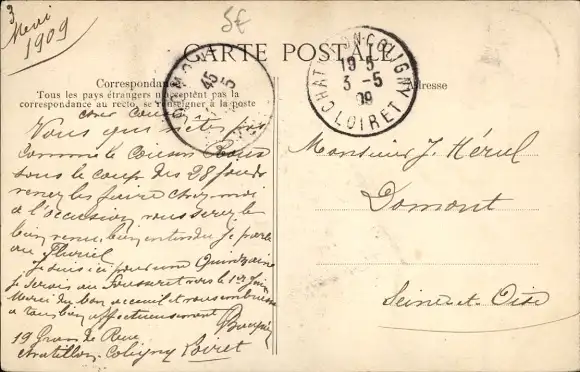 3
Mai
1909
5€
CARTE POSTALE
Correspondance
Tous les pays étrangers n'acceptent pas la
correspondance au recto, se renseigner à la poste
Adresse
CHATILLON-COLIGNY
19 5
3 -5
09
LOIRET
DOMONT
45
5
cher cousin
Vous qui n'êtes pas
comme le cousin
sous le coup des 28 jours
venez les faire chez moi
à l'occasion vous serez le
bien venu bien entendu je parle
au Pluriel
Je suis ici pour une Quinzaine
je serais au vers le 1er Juin
Merci du bon accueil et vous embrasse
à tous bien affectueusement
19 Grande Rue
Chatillon-Coligny Loiret
Monsieur J. Hérul
Domont
Seine-et-Oise